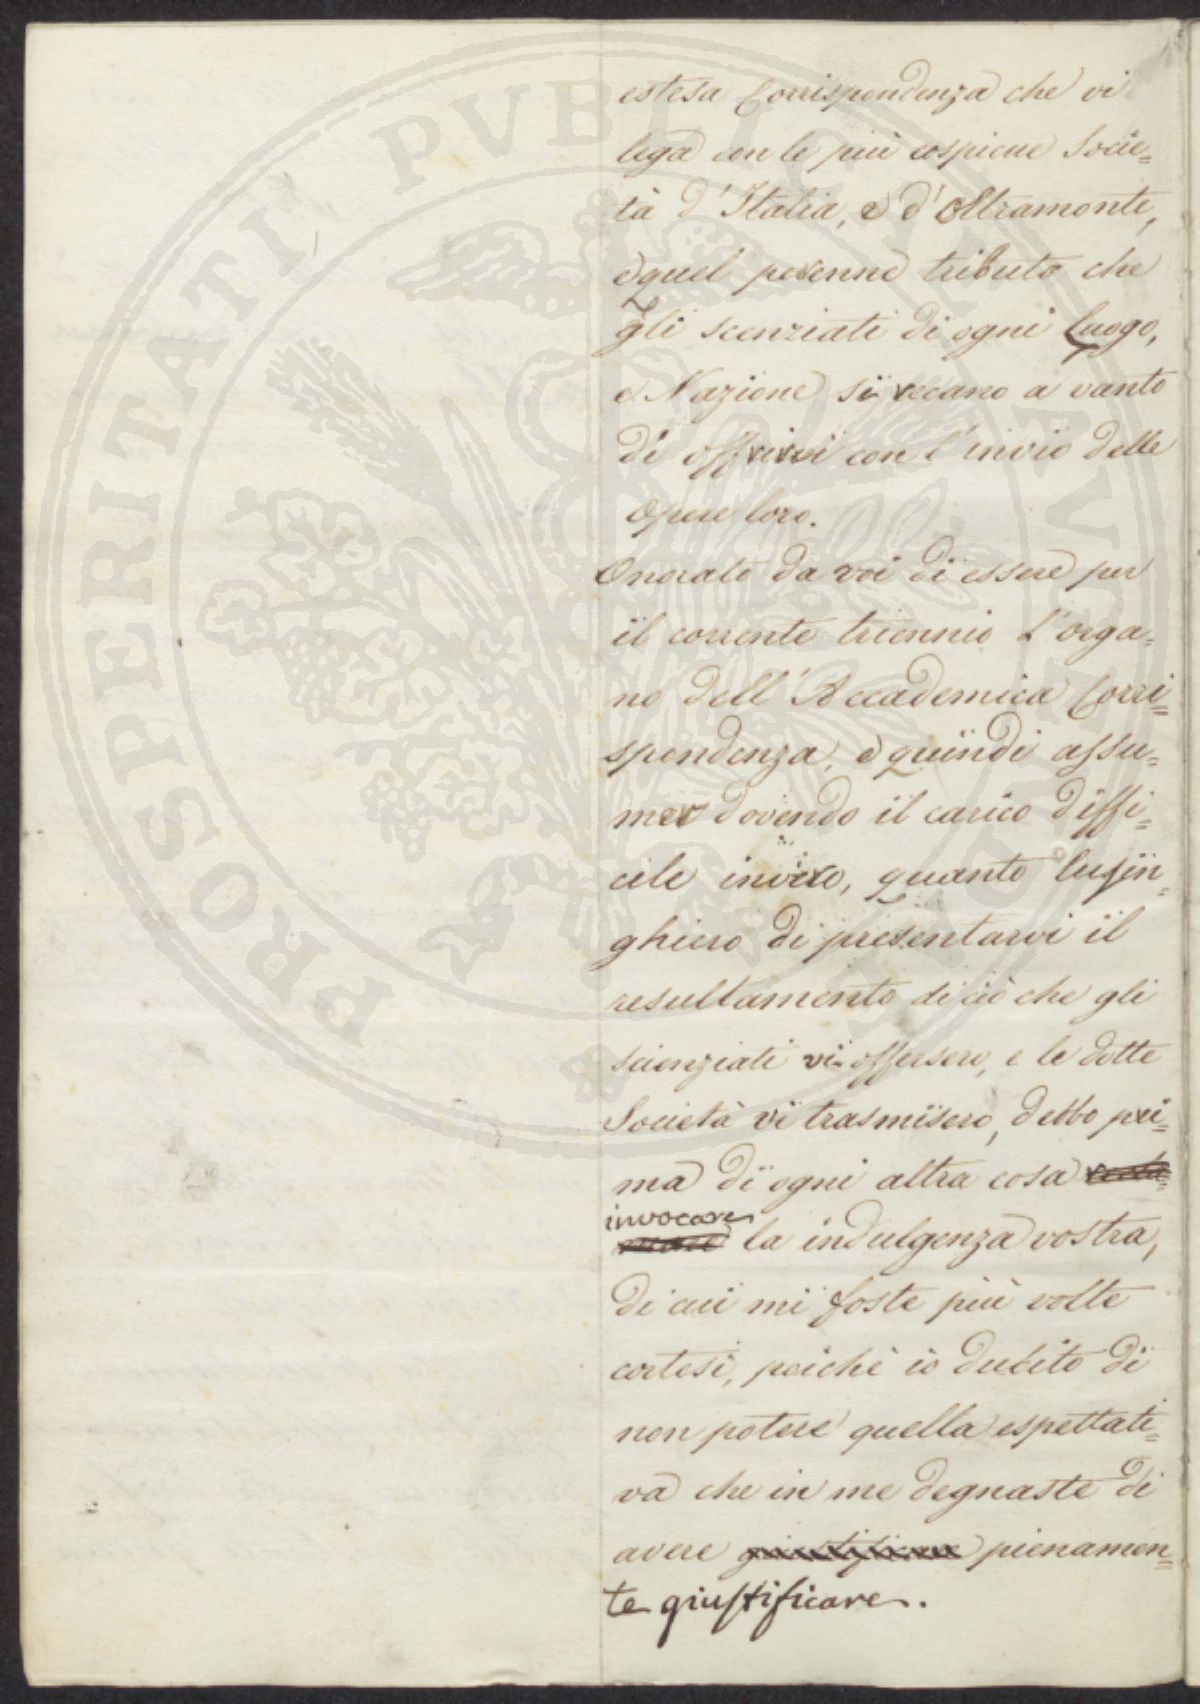 estesa Corrispondenza che vi
lega con le più cospicue Socie=
tà d'Italia, e d'Oltramonte,
e quel perenne tributo che
gli scenziati di ogni Luogo,
e Nazione si recano a vanto
di offrirvi con l'invio delle
Opere loro.
Onorato da voi di essere per
il corrente triennio l'orga=
no dell'Accademica Corri=
spondenza, e quindi assu=
mer dovendo il carico diffi=
cile invero, quanto lusin=
ghiero di presentarvi il
resultamento di ciò che gli
scienziati vi offersero, e le dotte
Società vi trasmisero, debbo pri=
ma di ogni altra cosa
invocare
la indulgenza vostra,
di cui mi foste più volte
cortesi, poichè io dubito di
non potere quella espettati=
va che in me degnaste di
avere giustificare pienamen=
te giustificare.
PROSPERITATI PVBLICAE AVGENDAE